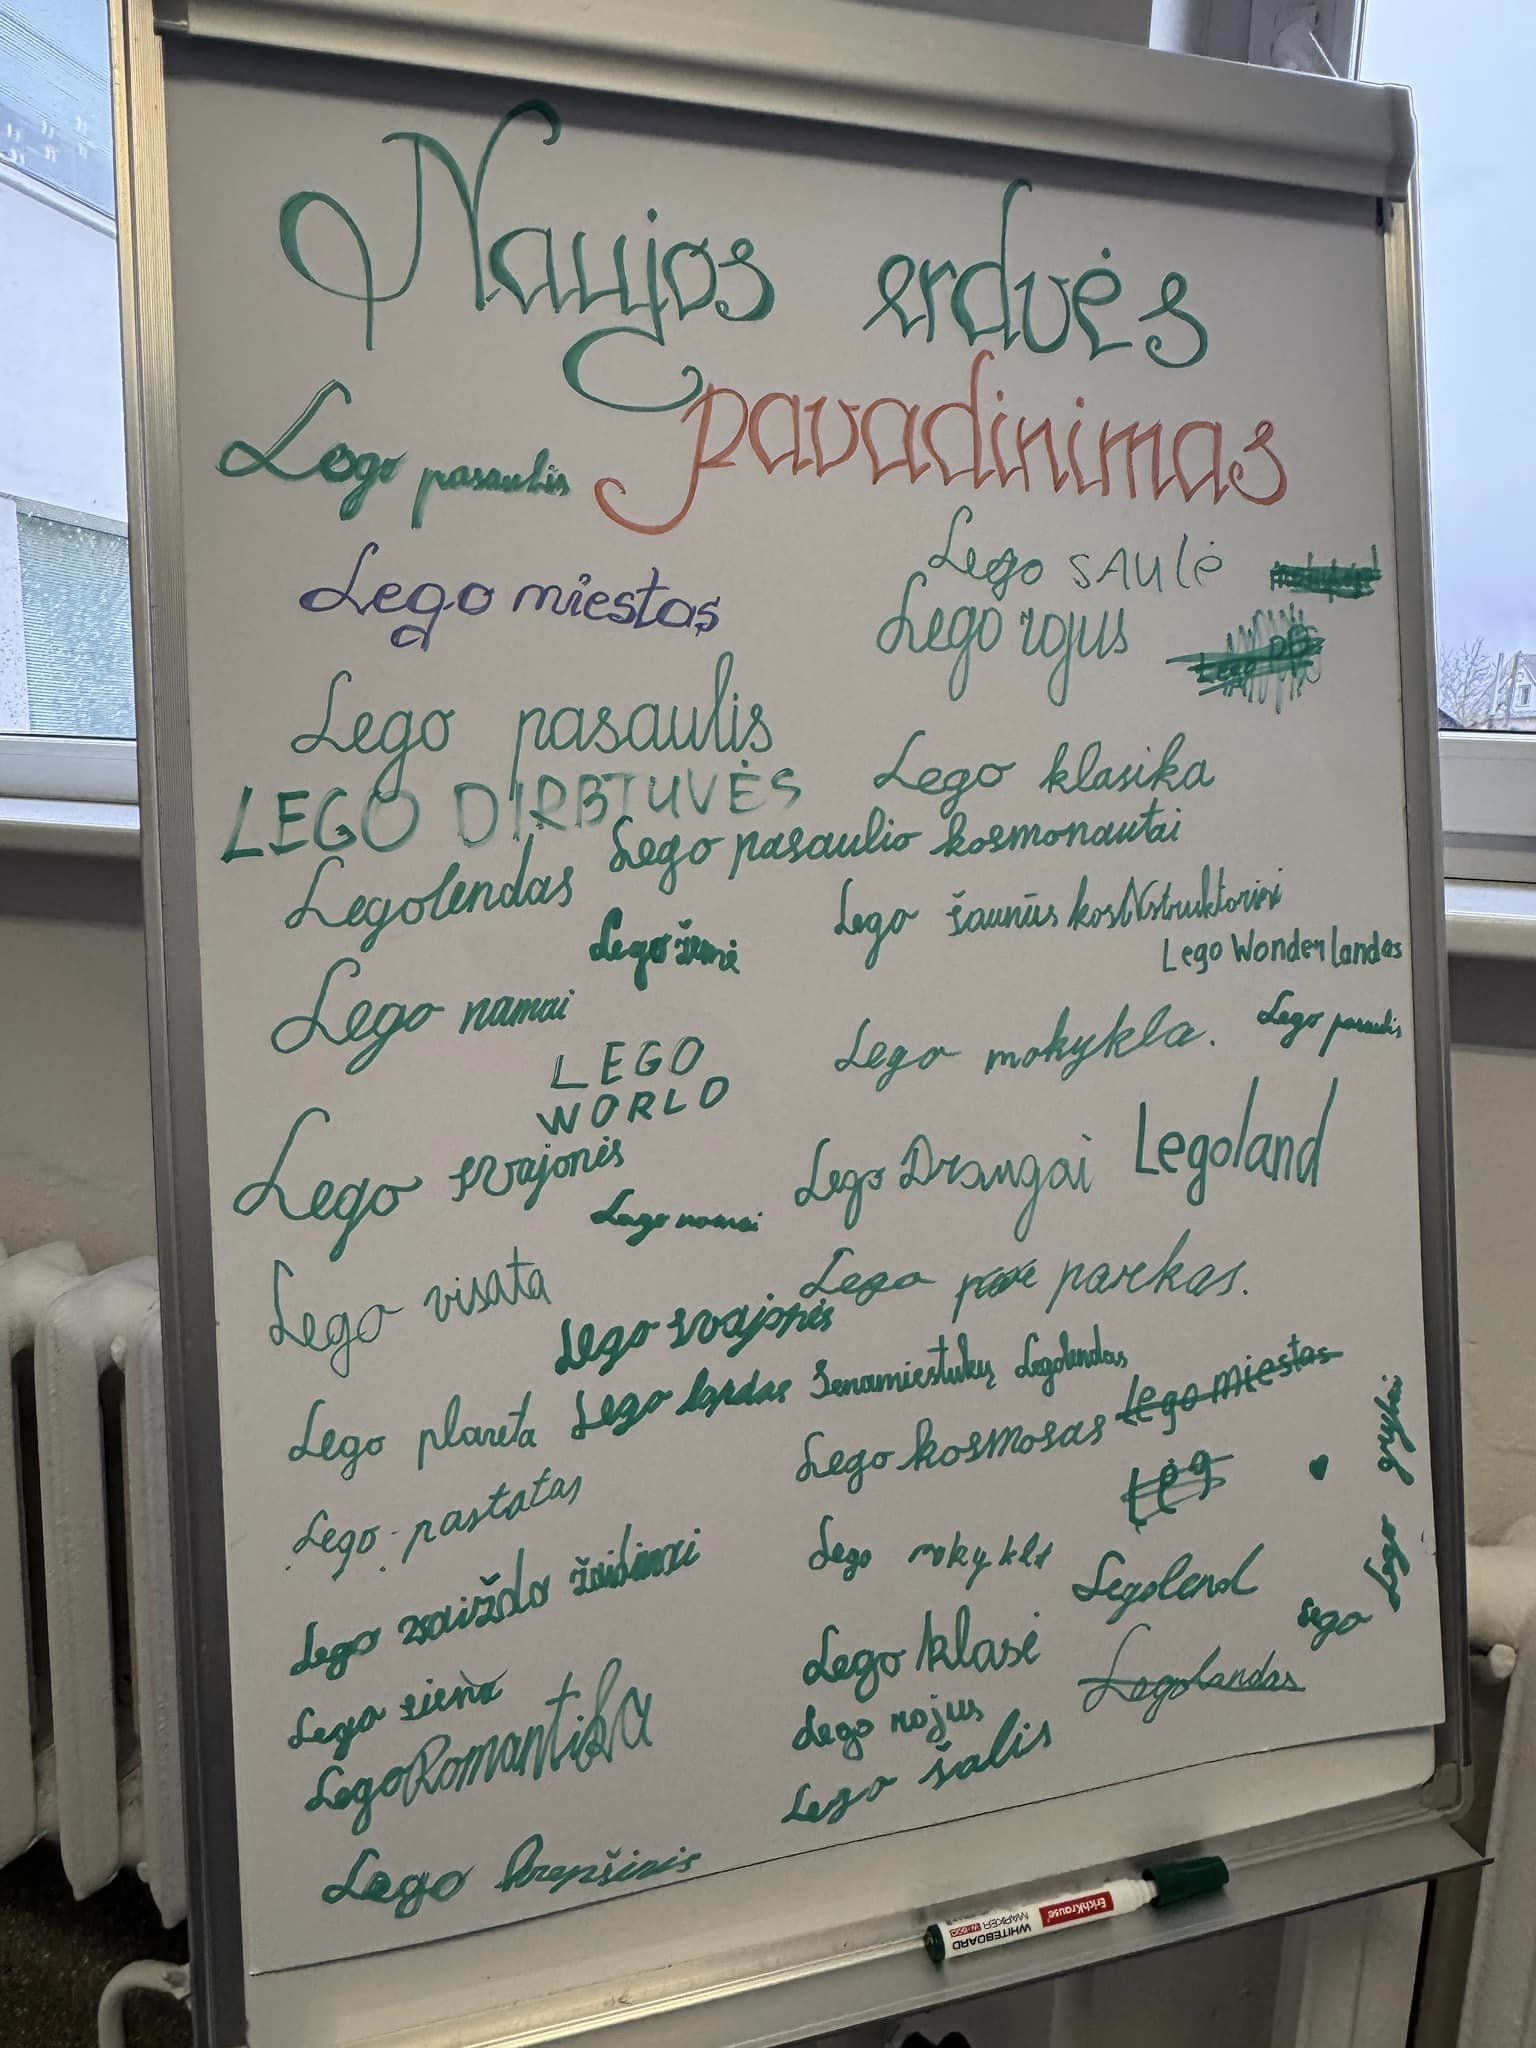 Naujos erdvės
pavadinimas
Lego pasaulis
Lego miestas
Lego saulė
Lego rojus
Lego pasaulis
Lego klasika
LEGO DIRBTUVĖS
Lego pasaulio kosmonautai
Legolendas
Lego šaunūs kosNstruktoriai
Lego žemė
Lego Wonderlandas
Lego namai
Lego mokykla.
Lego pasaulis
LEGO
WORLD
Lego svajonės
Lego Draugai
Legoland
Lego namai
Lego visata
Lego parkas.
Lego svajonės
Lego landas
Senamiestukų Legolendas
Lego miestas
Lego planeta
Lego kosmosas
Lėg
Lego pastatas
Lego mokykla
Legoland
Lego
Lego
Lego vaizdo žaidimai
Lego klasė
Legolandas
Lego siena
Lego rojus
Lego Romantika
Lego šalis
Lego
ErichKrause
WHITEBOARD
MARKER